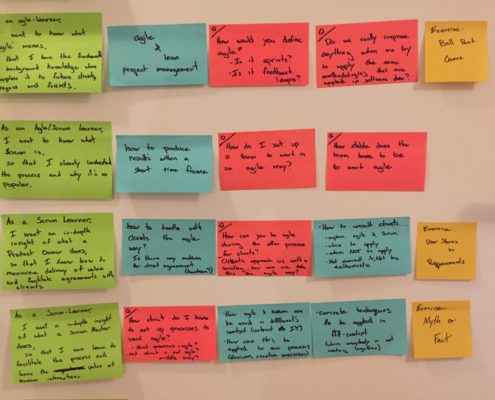 an agile-learner,
want to know what
agile means,
that I have the
background knowledge when
explain it to future clients,
and friends.
agile
&
lean
project management
Q
How would you define
agile?
- Is it sprints?
- Is it feedback
loops?
Q
Do we really improve
anything when we try
to apply the same
methodologies that are
applied in software dev?
Exercise:
Ball Point
Game
As an Agile/Scrum Learner,
I want to know what
Scrum is,
so that I clearly understand
the process and why it's so
popular.
how to produce
results within a
short time frame
Q
How do I set up
a team to work in
an agile way?
Q
How stable does the
team have to be
to work agile
As a Scrum Learner,
I want an in-depth
insight of what a
Product Owner does,
so that I know how to
maximize delivery of value
and facilitate agreements with
clients.
how to handle with
clients the agile
way?
Is there any
for client agreement
Q
How can you be agile
during the offer process
for clients?
Clients approach us with a
briefing, how can we
this the agile way?
- How to consult clients...
- explain agile & Scrum
- when to apply
- when NOT to apply
- Not oversell it, but be
enthusiastic
Exercise:
User Stories
vs
Requirements
As a Scrum-Learner,
I want a in-depth insight
of what a Scrum Master
does,
so that I can learn to
facilitate the process and
learn the value of
human interaction.
Q
How strict do I have
to set up processes to
work agile?
- strict processes = agile?
- not strict = not agile?
middle way?
- How agile & scrum can
be used in different
context (context ≠ IT)
- How can this be
applied to our process
(decision, creation processes)
- Concrete techniques
to be applied in
context
future everybody is not
working together)
Exercise:
Myth or
Fact